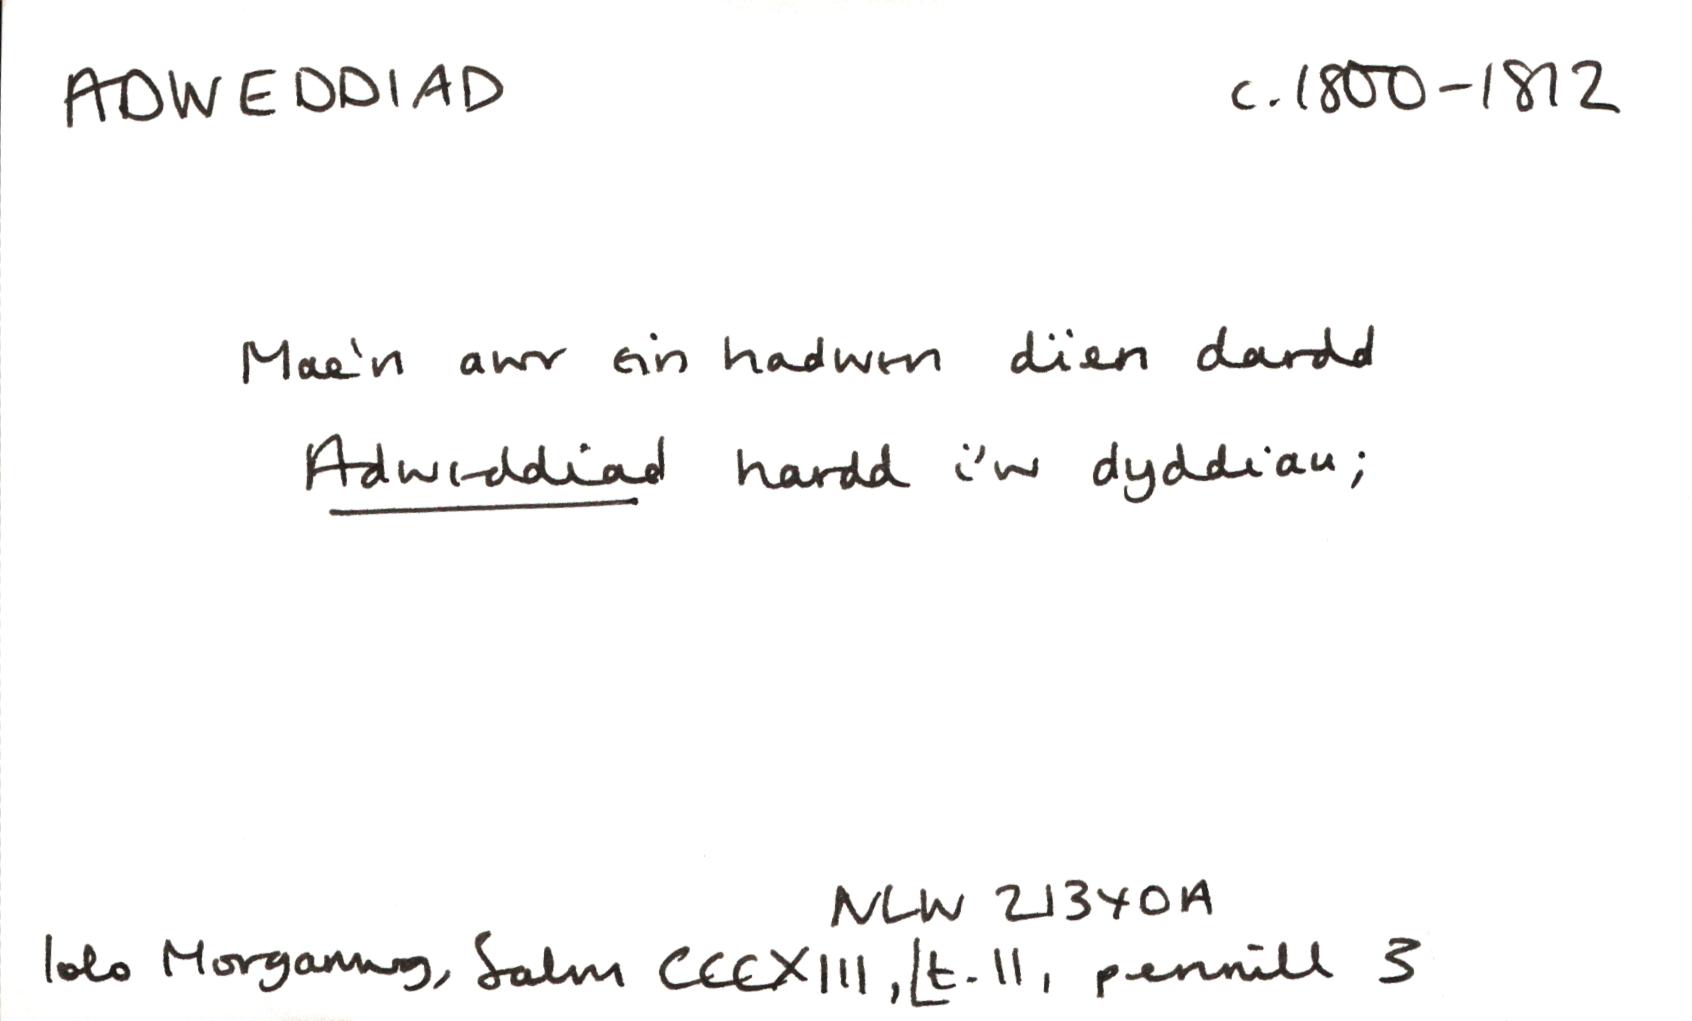 ADWEDDIAD c.1800-1812
Mae'n awr ein hadwen dïen dardd
Adweddiad hardd i'w dyddiau;
NLW 21340A
Iolo Morganwg, Salm CCCXIII, [t. 11, pennill 3